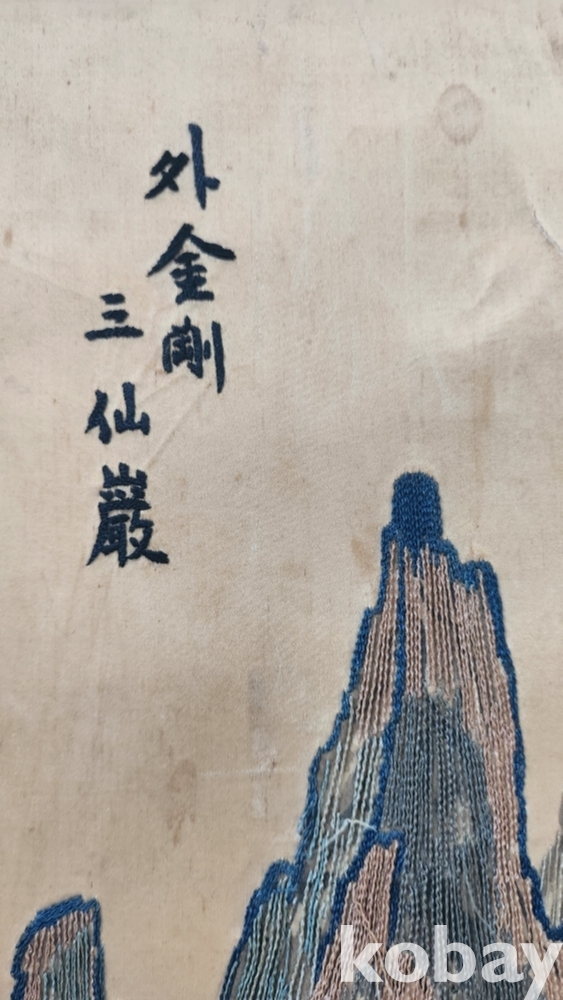 外金剛
三仙巖
kobay